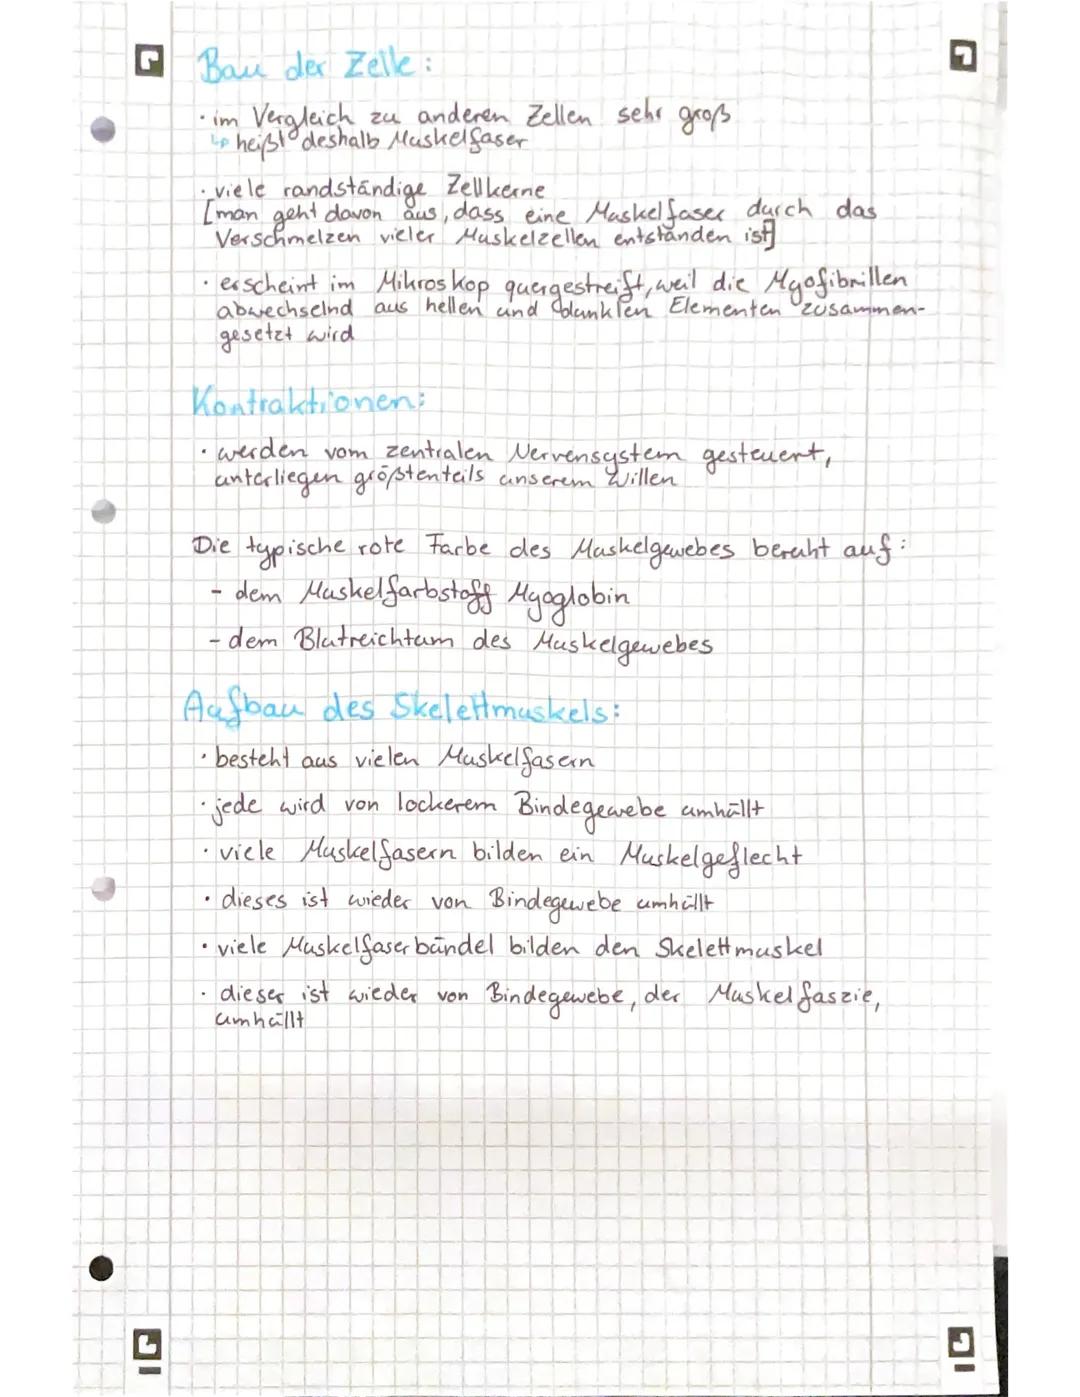 Bau der Zelle:
· im Vergleich zu anderen Zellen sehr groß
↳ heißt deshalb Muskelfaser
· viele randständige Zellkerne
[man geht davon aus, dass eine Muskelfaser durch das
Verschmelzen vieler Muskelzellen entstanden ist]
· erscheint im Mikroskop quergestreift, weil die Myofibrillen
abwechselnd aus hellen und dunklen Elementen zusammen-
gesetzt wird
Kontraktionen:
· werden vom zentralen Nervensystem gesteuert,
unterliegen größtenteils unserem Willen
Die typische rote Farbe des Muskelgewebes beruht auf:
- dem Muskelfarbstoff Myoglobin
- dem Blutreichtum des Muskelgewebes
Aufbau des Skelettmuskels:
· besteht aus vielen Muskelfasern
· jede wird von lockerem Bindegewebe umhüllt
· viele Muskelfasern bilden ein Muskelgeflecht
· dieses ist wieder von Bindegewebe umhüllt
· viele Muskelfaserbündel bilden den Skelettmuskel
· dieser ist wieder von Bindegewebe, der Muskelfaszie,
umhüllt